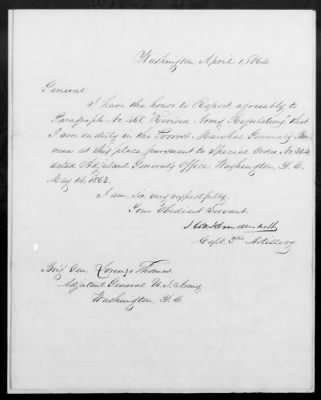 Washington April 1, 1864
General
I have the honor to Report agreeably to
Paragraph No. 468 Revised Army Regulations, that
I am on duty in the Provost Marshal General's Bu-
reau at this place, pursuant to Special Order No.
dated Adjutant General's Office, Washington, D.C.
May 14, 1863.
I am, Sir, very respectfully
Your Obedient Servant
Capt. 3rd Artillery
Brig. Gen. Lorenzo Thomas
Adjutant General U.S. Army
Washington, D.C.